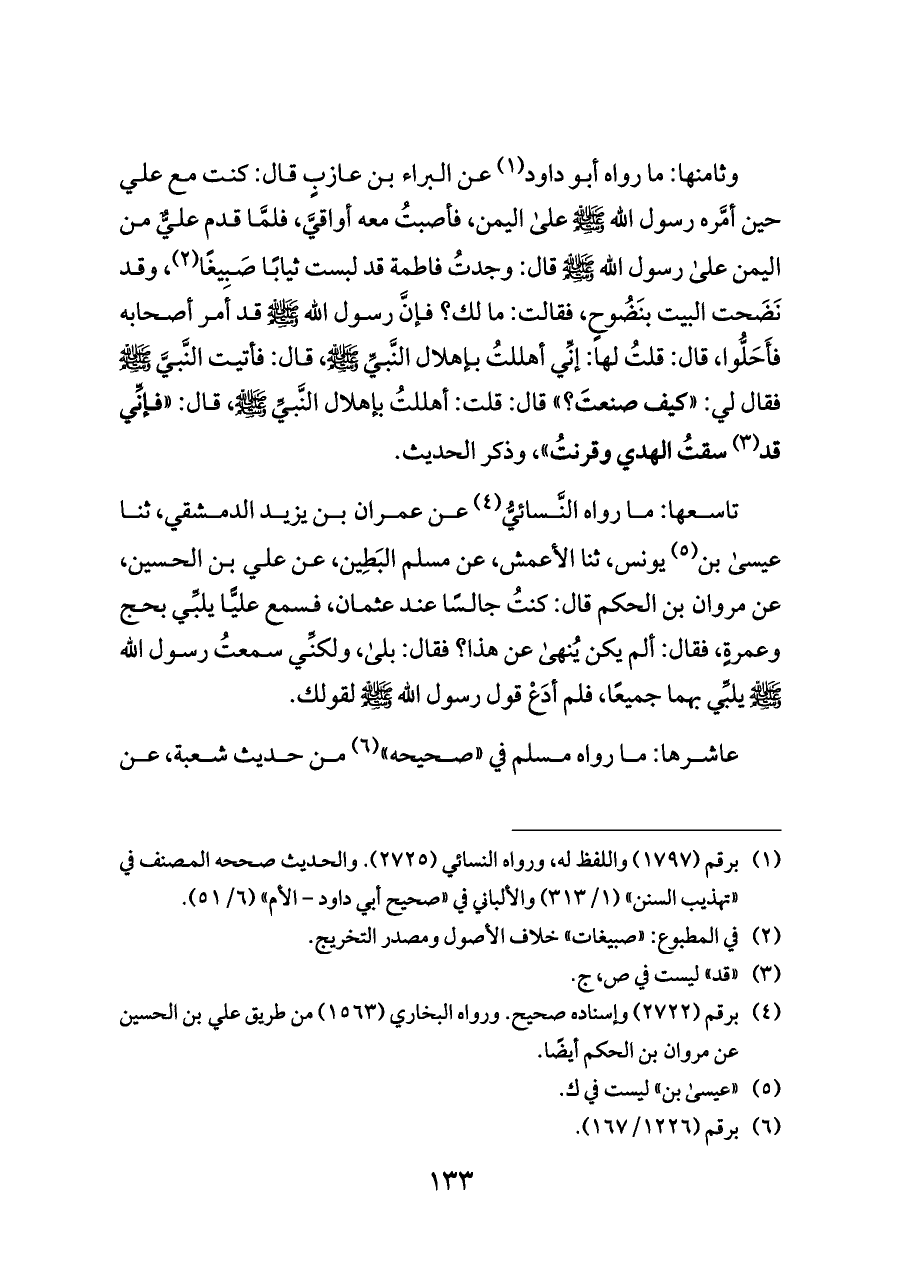 وثامنها: ما رواه أبو داود(١) عن البراء بن عازبٍ قال: كنت مع علي
حين أمَّره رسول الله ﷺ علىٰ اليمن، فأصبتُ معه أواقيَّ، فلمَّا قدم عليٌّ من
اليمن علىٰ رسول الله ﷺ قال: وجدتُ فاطمة قد لبست ثيابًا صَبِيغًا(٢)، وقد
نَضَحت البيت بنَضُوحٍ، فقالت: ما لك؟ فإنَّ رسول الله ﷺ قد أمر أصحابه
فأَحَلُّوا، قال: قلتُ لها: إنِّي أهللتُ بإهلال النَّبيِّ ﷺ، قال: فأتيت النَّبيَّ ﷺ
فقال لي: «كيف صنعتَ؟» قال: قلت: أهللتُ بإهلال النَّبيِّ ﷺ، قال: «فإنِّي
قد(٣) سقتُ الهدي وقرنتُ»، وذكر الحديث.
تاسعها: ما رواه النَّسائيُّ(٤) عن عمران بن يزيد الدمشقي، ثنا
عيسىٰ بن(٥) يونس، ثنا الأعمش، عن مسلم البَطِين، عن علي بن الحسين،
عن مروان بن الحكم قال: كنتُ جالسًا عند عثمان، فسمع عليًّا يلبِّي بحج
وعمرةٍ، فقال: ألم يكن يُنهىٰ عن هذا؟ فقال: بلىٰ، ولكنِّي سمعتُ رسول الله
ﷺ يلبِّي بهما جميعًا، فلم أدَعْ قول رسول الله ﷺ لقولك.
عاشرها: ما رواه مسلم في «صحيحه»(٦) من حديث شعبة، عن
(١) برقم (١٧٩٧) واللفظ له، ورواه النسائي (٢٧٢٥). والحديث صححه المصنف في
«تهذيب السنن» (١/ ٣١٣) والألباني في «صحيح أبي داود – الأم» (٦/ ٥١).
(٢) في المطبوع: «صبيغات» خلاف الأصول ومصدر التخريج.
(٣) «قد» ليست في ص، ج.
(٤) برقم (٢٧٢٢) وإسناده صحيح. ورواه البخاري (١٥٦٣) من طريق علي بن الحسين
عن مروان بن الحكم أيضًا.
(٥) «عيسىٰ بن» ليست في ك.
(٦) برقم (١٢٢٦/ ١٦٧).
١٣٣